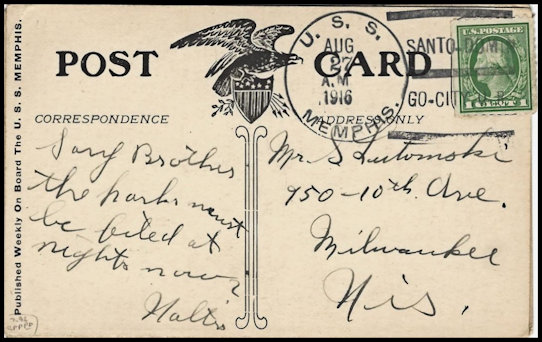 Published Weekly On Board The U. S. S. MEMPHIS.
POST CARD
U. S. S.
AUG
27
A.M
1916
MEMPHIS.
SANTO-DOMIN
GO-CITY
U.S. POSTAGE
1 CENT 1
CORRESPONDENCE
ADDRESS ONLY
Say Brother
the harks must
be biled at
nights now
Mr. S. Lutomski
950-10th Ave.
Milwaukee
Wis.